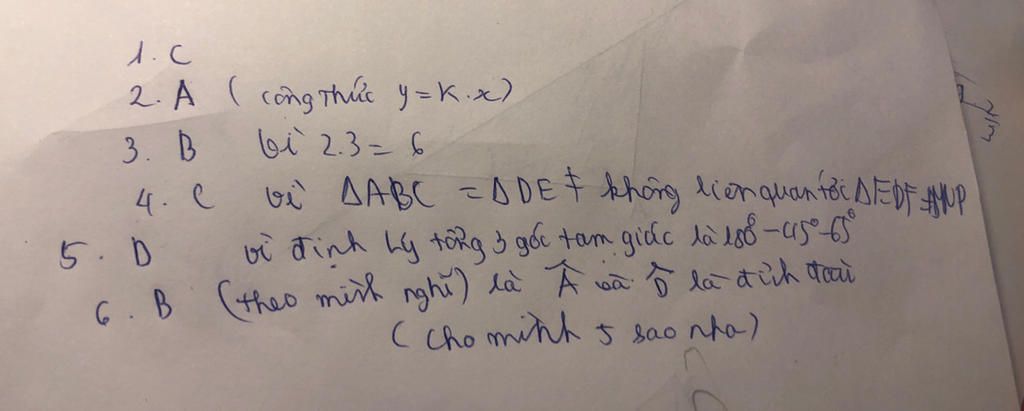 1. C
2. A ( công thức y = K . x )
3. B vì 2.3 = 6
4. C vì ΔABC = ΔDEF không liên quan tới ΔEDF = ΔMNP
5. D vì định lý tổng 3 góc tam giác là 180° - 45° - 65°
6. B (theo mình nghĩ) là Â và D̂ là đỉnh
( cho mình 5 sao nha )